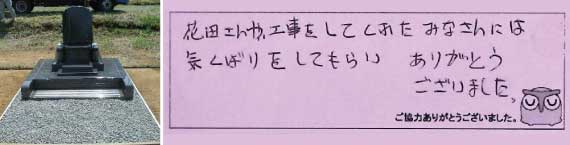 花田さんや、工事をしてくれたみなさんには
気くばりをしてもらい ありがとう
ございました。
ご協力ありがとうございました。